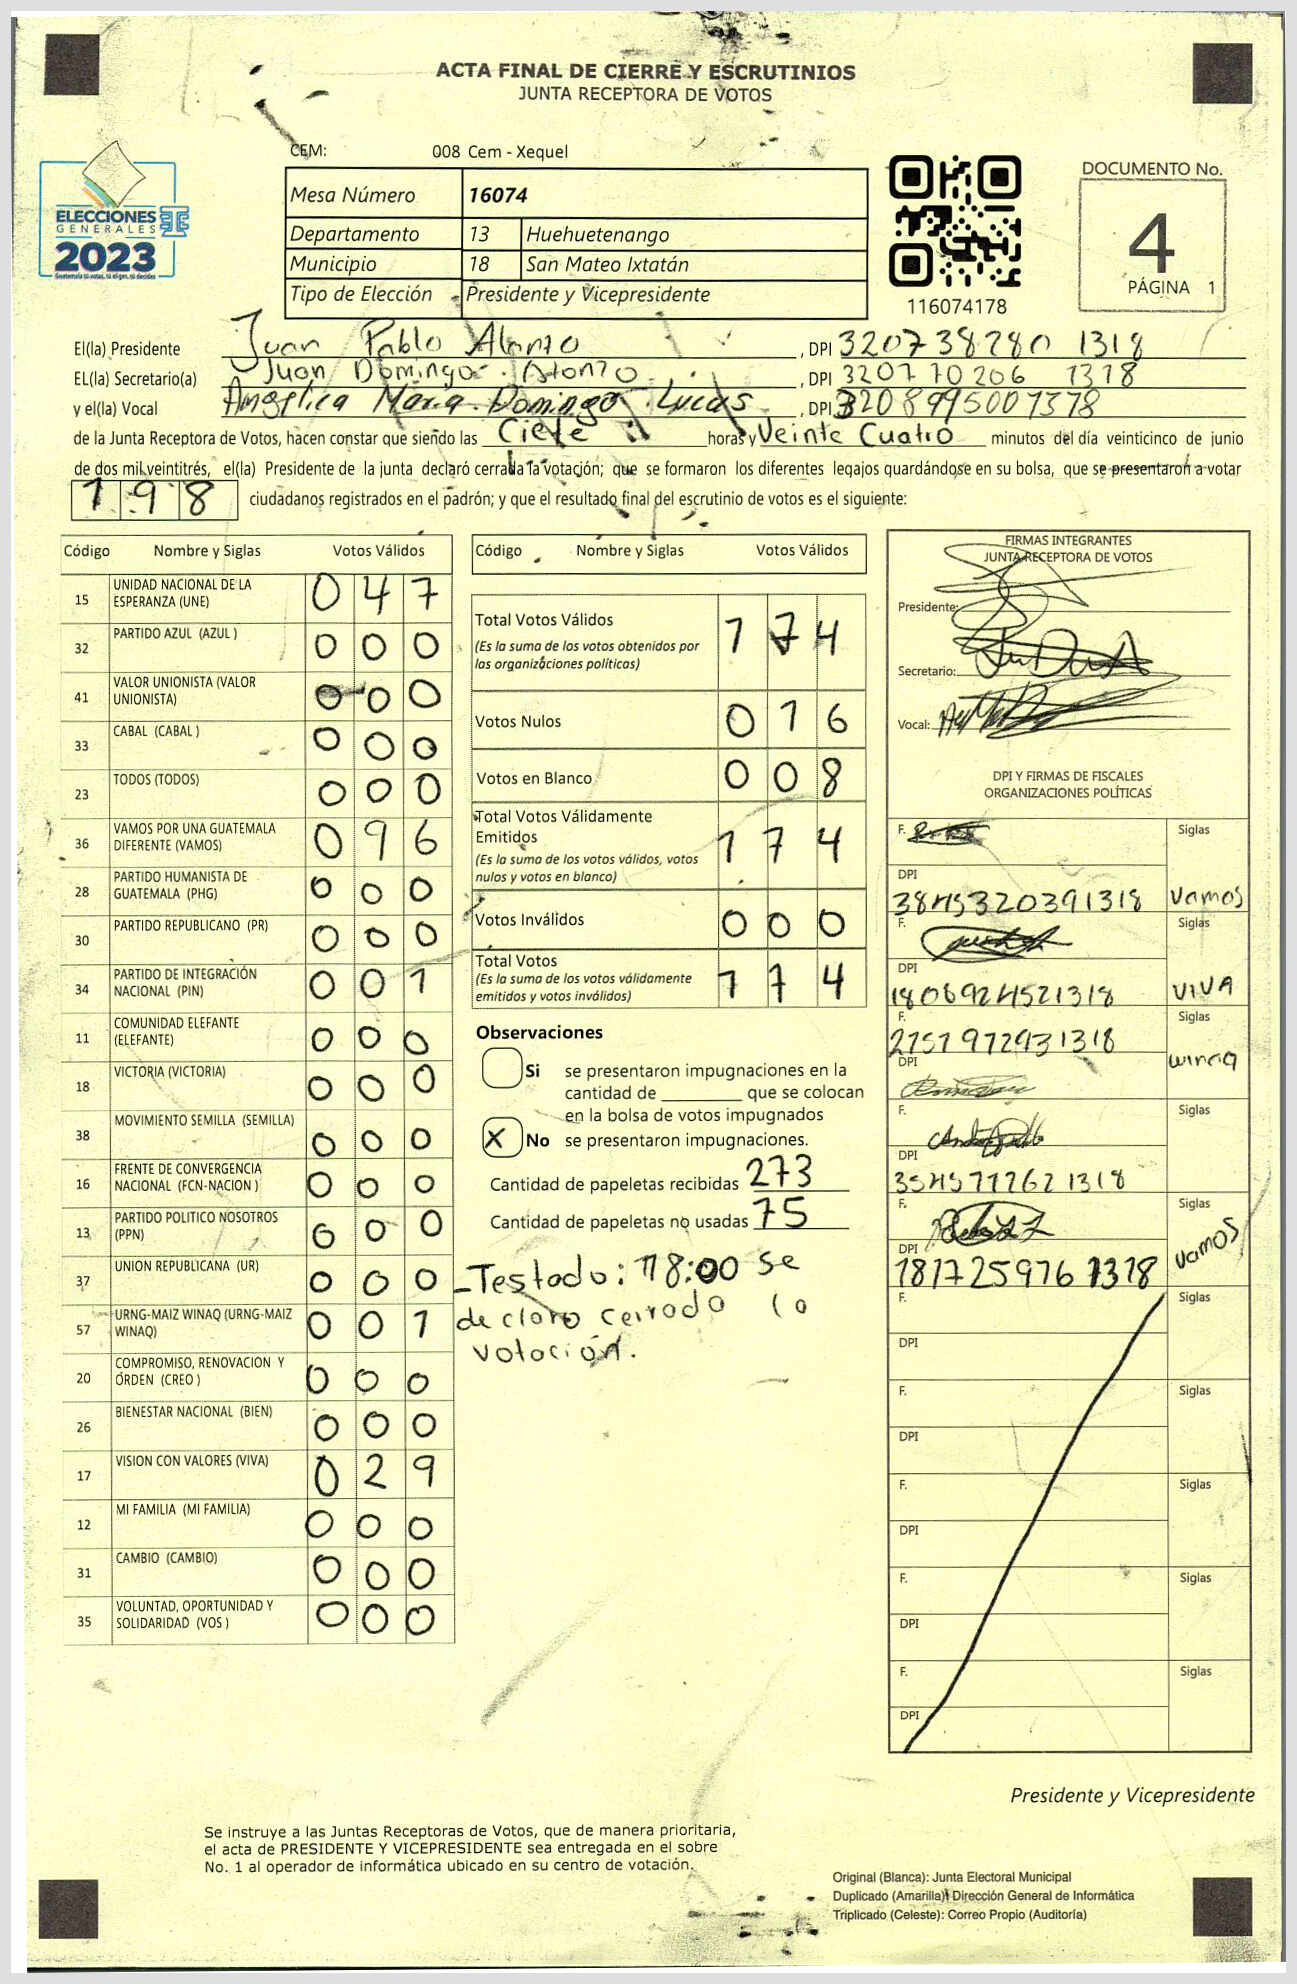 ACTA FINAL DE CIERRE Y ESCRUTINIOS
JUNTA RECEPTORA DE VOTOS
CEM: 008 Cem - Xequel
ELECCIONES
GENERALES
2023
Mesa Número 16074
Departamento 13 Huehuetenango
Municipio 18 San Mateo Ixtatán
Tipo de Elección Presidente y Vicepresidente
116074178
DOCUMENTO No.
4
PÁGINA 1
El(la) Presidente Juan Pablo Alonzo , DPI 320738280 1318
EL(la) Secretario(a) Juan Domingo Alonzo , DPI 320770206 1318
y el(la) Vocal Angelica Maria Domingo Lucas , DPI 3208995001318
de la Junta Receptora de Votos, hacen constar que siendo las Ciete horas y Veinte Cuatro minutos del día veinticinco de junio
de dos mil veintitrés, el(la) Presidente de la junta declaró cerrada la votación; que se formaron los diferentes legajos quardándose en su bolsa, que se presentaron a votar
198 ciudadanos registrados en el padrón; y que el resultado final del escrutinio de votos es el siguiente:
Código Nombre y Siglas Votos Válidos
15 UNIDAD NACIONAL DE LA ESPERANZA (UNE) 047
32 PARTIDO AZUL (AZUL ) 000
41 VALOR UNIONISTA (VALOR UNIONISTA) 000
33 CABAL (CABAL ) 000
23 TODOS (TODOS) 000
36 VAMOS POR UNA GUATEMALA DIFERENTE (VAMOS) 096
28 PARTIDO HUMANISTA DE GUATEMALA (PHG) 000
30 PARTIDO REPUBLICANO (PR) 000
34 PARTIDO DE INTEGRACIÓN NACIONAL (PIN) 001
11 COMUNIDAD ELEFANTE (ELEFANTE) 000
18 VICTORIA (VICTORIA) 000
38 MOVIMIENTO SEMILLA (SEMILLA) 000
16 FRENTE DE CONVERGENCIA NACIONAL (FCN-NACION ) 000
13 PARTIDO POLITICO NOSOTROS (PPN) 000
37 UNION REPUBLICANA (UR) 000
57 URNG-MAIZ WINAQ (URNG-MAIZ WINAQ) 001
20 COMPROMISO, RENOVACION Y ÓRDEN (CREO ) 000
26 BIENESTAR NACIONAL (BIEN) 000
17 VISION CON VALORES (VIVA) 029
12 MI FAMILIA (MI FAMILIA) 000
31 CAMBIO (CAMBIO) 000
35 VOLUNTAD, OPORTUNIDAD Y SOLIDARIDAD (VOS ) 000
Código Nombre y Siglas Votos Válidos
Total Votos Válidos 174
(Es la suma de los votos obtenidos por
las organizaciones políticas)
Votos Nulos 016
Votos en Blanco 008
Total Votos Válidamente
Emitidos 174
(Es la suma de los votos válidos, votos
nulos y votos en blanco)
Votos Inválidos 000
Total Votos 174
(Es la suma de los votos válidamente
emitidos y votos inválidos)
Observaciones
Si se presentaron impugnaciones en la
cantidad de ________ que se colocan
en la bolsa de votos impugnados
X No se presentaron impugnaciones.
Cantidad de papeletas recibidas 273
Cantidad de papeletas no usadas 75
-Testado: 18:00 se
declaro cerrado la
votación.
FIRMAS INTEGRANTES
JUNTA RECEPTORA DE VOTOS
Presidente:
Secretario:
Vocal:
DPI Y FIRMAS DE FISCALES
ORGANIZACIONES POLÍTICAS
F. Siglas
DPI
3845320391318 Vamos
F. Siglas
DPI
1806924521318 VIVA
F. Siglas
2757972931318 winaq
DPI
F. Siglas
DPI
3545777621318
F. Siglas
DPI
1817259761318 vamos
F. Siglas
DPI
F. Siglas
DPI
F. Siglas
DPI
F. Siglas
DPI
F. Siglas
DPI
Presidente y Vicepresidente
Se instruye a las Juntas Receptoras de Votos, que de manera prioritaria,
el acta de PRESIDENTE Y VICEPRESIDENTE sea entregada en el sobre
No. 1 al operador de informática ubicado en su centro de votación.
Original (Blanca): Junta Electoral Municipal
Duplicado (Amarilla): Dirección General de Informática
Triplicado (Celeste): Correo Propio (Auditoría)